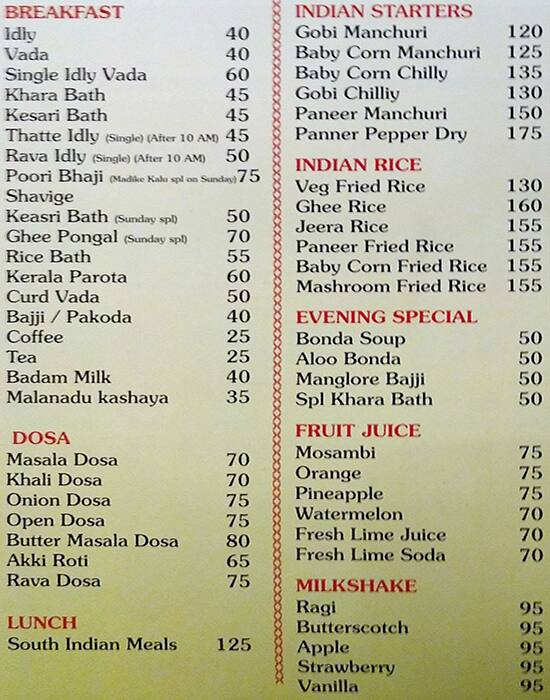 BREAKFAST
Idly 40
Vada 40
Single Idly Vada 60
Khara Bath 45
Kesari Bath 45
Thatte Idly (Single) (After 10 AM) 45
Rava Idly (Single) (After 10 AM) 50
Poori Bhaji (Madike Kalu spl on Sunday) 75
Shavige
Keasri Bath (Sunday spl) 50
Ghee Pongal (Sunday spl) 70
Rice Bath 55
Kerala Parota 60
Curd Vada 50
Bajji / Pakoda 40
Coffee 25
Tea 25
Badam Milk 40
Malanadu kashaya 35
DOSA
Masala Dosa 70
Khali Dosa 70
Onion Dosa 75
Open Dosa 75
Butter Masala Dosa 80
Akki Roti 65
Rava Dosa 75
LUNCH
South Indian Meals 125
INDIAN STARTERS
Gobi Manchuri 120
Baby Corn Manchuri 125
Baby Corn Chilly 135
Gobi Chilliy 130
Paneer Manchuri 150
Panner Pepper Dry 175
INDIAN RICE
Veg Fried Rice 130
Ghee Rice 160
Jeera Rice 155
Paneer Fried Rice 155
Baby Corn Fried Rice 155
Mashroom Fried Rice 155
EVENING SPECIAL
Bonda Soup 50
Aloo Bonda 50
Manglore Bajji 50
Spl Khara Bath 50
FRUIT JUICE
Mosambi 75
Orange 75
Pineapple 75
Watermelon 70
Fresh Lime Juice 70
Fresh Lime Soda 70
MILKSHAKE
Ragi 95
Butterscotch 95
Apple 95
Strawberry 95
Vanilla 95